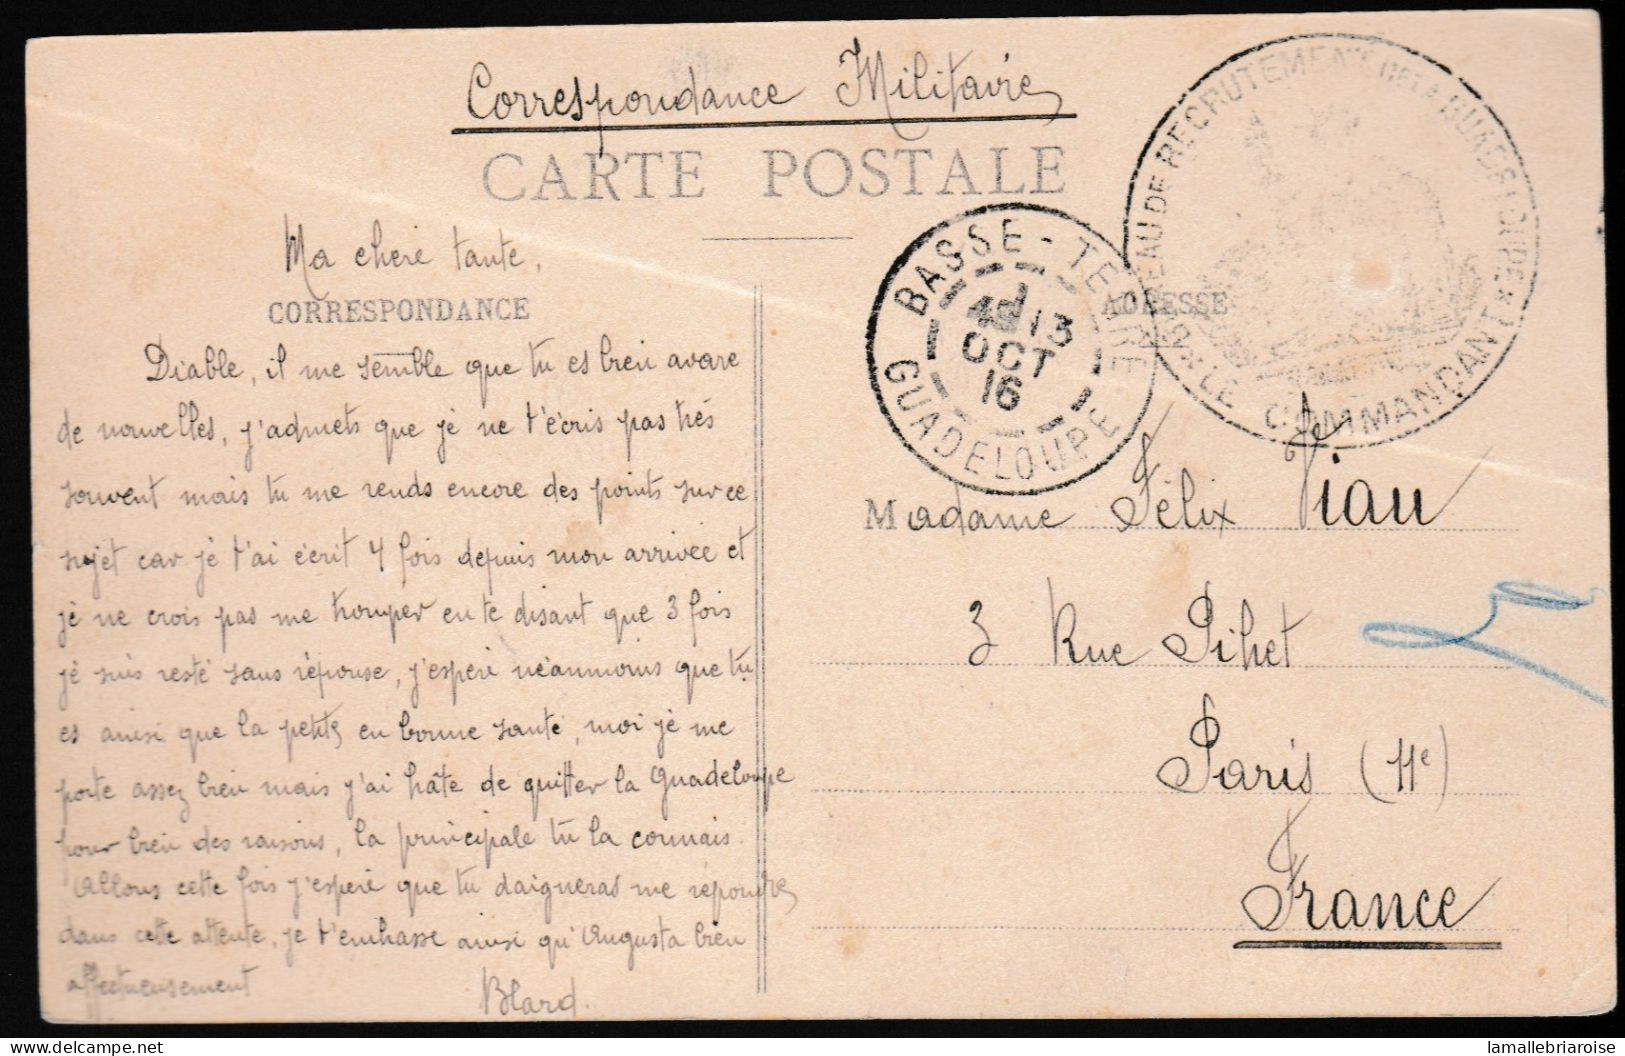 Correspondance Militaire
CARTE POSTALE
BUREAU DE RECRUTEMENT DE LA GUADELOUPE
LE COMMANDANT
BASSE-TERRE
13
OCT
16
GUADELOUPE
Ma chere tante,
CORRESPONDANCE
ADRESSE
Diable, il me semble que tu es bien avare
de nouvelles, j'admets que je ne t'écris pas très
souvent mais tu me rends encore des points sur ce
sujet car je t'ai écrit 4 fois depuis mon arrivée et
je ne crois pas me tromper en te disant que 3 fois
je suis resté sans réponse, j'espere néanmoins que tu
es ainsi que la petite en bonne santé, moi je me
porte assez bien mais j'ai hâte de quitter la Guadeloupe
pour bien des raisons, la principale tu la connais.
Allons cette fois j'espere que tu daigneras me répondre
dans cette attente, je t'embrasse ainsi qu'Augusta bien
affectueusement
Blard.
Madame Félix Viau
3 Rue Pihet
Paris (11e)
France
lamallebriaroise